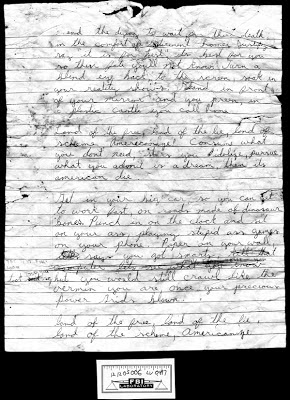 send the dying to wait for their death
in the comfort of retirement homes,
say it's for the best
no this fate you'll not know, turn a
blind eye back to the screen, soak in
your reality shows. Stand in front
of your mirror and you preen, in
a plastic castle you call
Land of the free, land of the lie, land of
scheme, Americonage! Consume what
you don't need, stars you idolize, pursue
what you admit is a dream, then it's
american die
Get in your big car, so you can get
to work fast, on roads made of dinosaur
bones. Punch in on the clock and sit
on your ass, playing stupid ass games
on your phone. Paper on your wall,
says you got smarts
but you would still crawl like the
vermin you are, once your precious
power grids blown.
land of the free, land of the lie,
land of the scheme, Americanage
FBI
LABORATORY